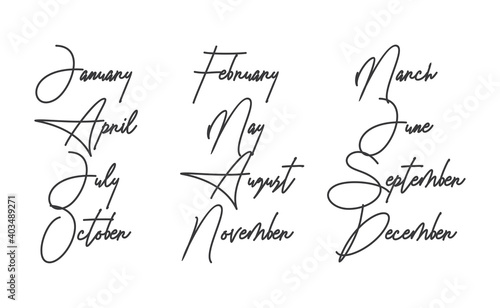 January February March
April May June
July August September
October November December
Adobe Stock | #403489271